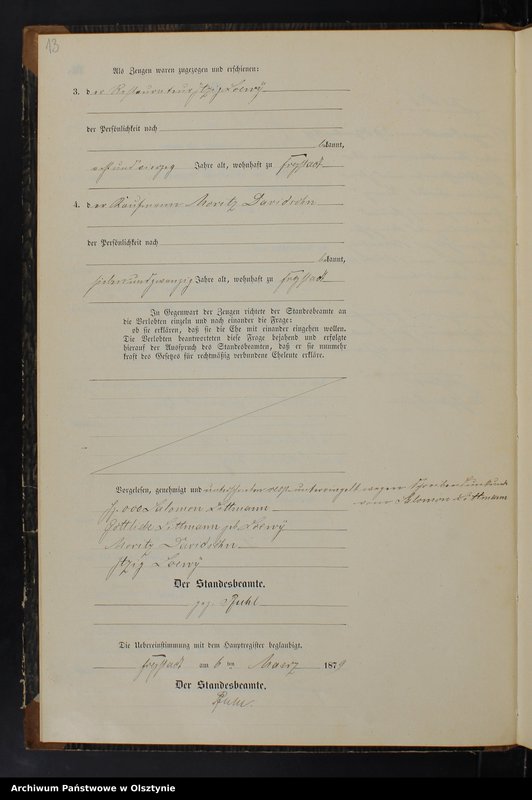 13
Als Zeugen waren zugezogen und erschienen:
3. der Restaurateur Itzig Loewy
der Persönlichkeit nach
bekannt,
acht und vierzig Jahre alt, wohnhaft zu Freystadt
4. der Kaufmann Moritz Davidsohn
der Persönlichkeit nach
bekannt,
sieben und zwanzig Jahre alt, wohnhaft zu Freystadt
In Gegenwart der Zeugen richtete der Standesbeamte an
die Verlobten einzeln und nach einander die Frage:
ob sie erklären, daß sie die Ehe mit einander eingehen wollen.
Die Verlobten beantworteten diese Frage bejahend und erfolgte
hierauf der Ausspruch des Standesbeamten, daß er sie nunmehr
kraft des Gesetzes für rechtmäßig verbundene Eheleute erkläre.
Vorgelesen, genehmigt und wegen Schreibensunkunde
vom Salomon Littmann
Salomon Littmann
Littmann geb. Loewy
Moritz Davidsohn
Itzig Loewy
Der Standesbeamte.
gez.
Die Uebereinstimmung mit dem Hauptregister beglaubigt.
Freystadt am 6ten Maerz 1879
Der Standesbeamte.
Archiwum Państwowe w Olsztynie